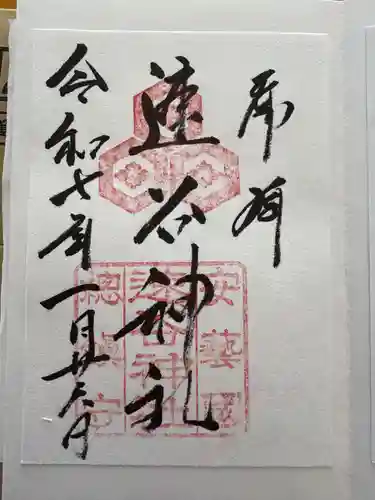 奉拝
速谷神社
令和七年一月廿六日
安藝國
速谷神社
總鎮守